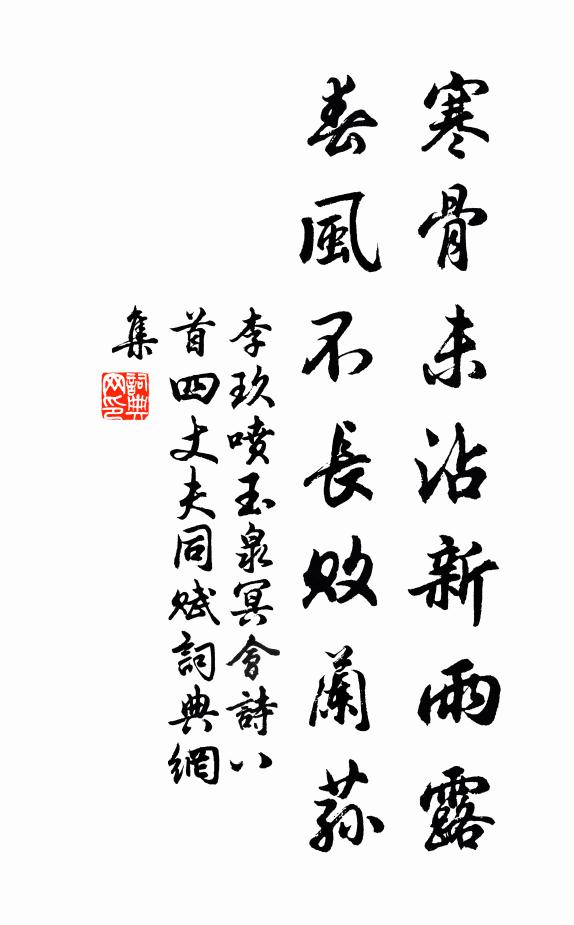 寒骨未沾新雨露
春風不長敗蘭蓀
李玖噴玉泉冥會詩八
首四丈夫同賦詞典網
集
詞典
网印